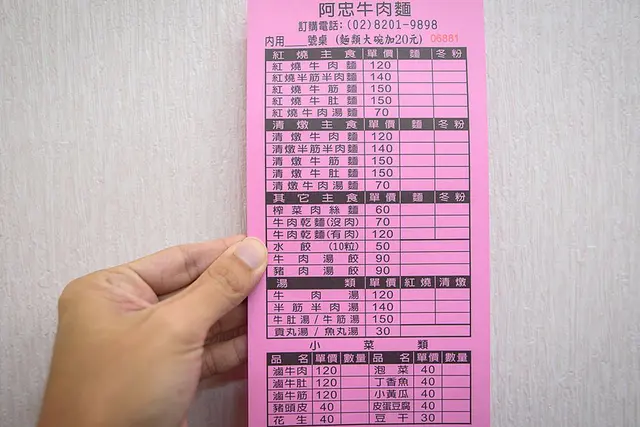 阿忠牛肉麵
訂購電話:(02)8201-9898
內用 號桌 (麵類大碗加20元) 06881
紅燒主食 單價 麵 冬粉
紅燒牛肉麵 120
紅燒半筋半肉麵 140
紅燒牛筋麵 150
紅燒牛肚麵 150
紅燒牛肉湯麵 70
清燉主食 單價 麵 冬粉
清燉牛肉麵 120
清燉半筋半肉麵 140
清燉牛筋麵 150
清燉牛肚麵 150
清燉牛肉湯麵 70
其它主食 單價 麵 冬粉
榨菜肉絲麵 60
牛肉乾麵(沒肉) 70
牛肉乾麵(有肉) 120
水餃 (10粒) 50
牛肉湯餃 90
豬肉湯餃 90
湯類 單價 紅燒 清燉
牛肉湯 120
半筋半肉湯 140
牛肚湯/牛筋湯 150
貢丸湯/魚丸湯 30
小菜類
品名 單價 數量 品名 單價 數量
滷牛肉 120 泡菜 40
滷牛肚 120 丁香魚 40
滷牛筋 120 小黃瓜 40
豬頭皮 40 皮蛋豆腐 40
花生 40 豆干 30